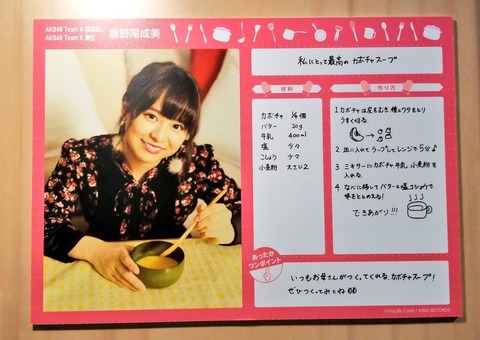 AKB48 Team 8(熊本県)
AKB48 Team K 兼任
倉野尾成美
私にとって最高の カボチャスープ
材料
カボチャ 1/4個
バター 20g
牛乳 400ml
塩 少々
こしょう 少々
小麦粉 大さじ2
作り方
1.カボチャは皮をむき 種とワタをとり
うすく切る
2. 皿に入れてラップしてレンジで5分♪
3. ミキサーにカボチャ 牛乳 小麦粉を
入れる.
4. なべに移してバターと塩コショウで
味をととのえる!
できあがり!!!
あったか
ワンポイント
いつもお母さんがつくってくれる.カボチャスープ!
ぜひつくってみてね
©You,Be Cool! / KING RECORDS